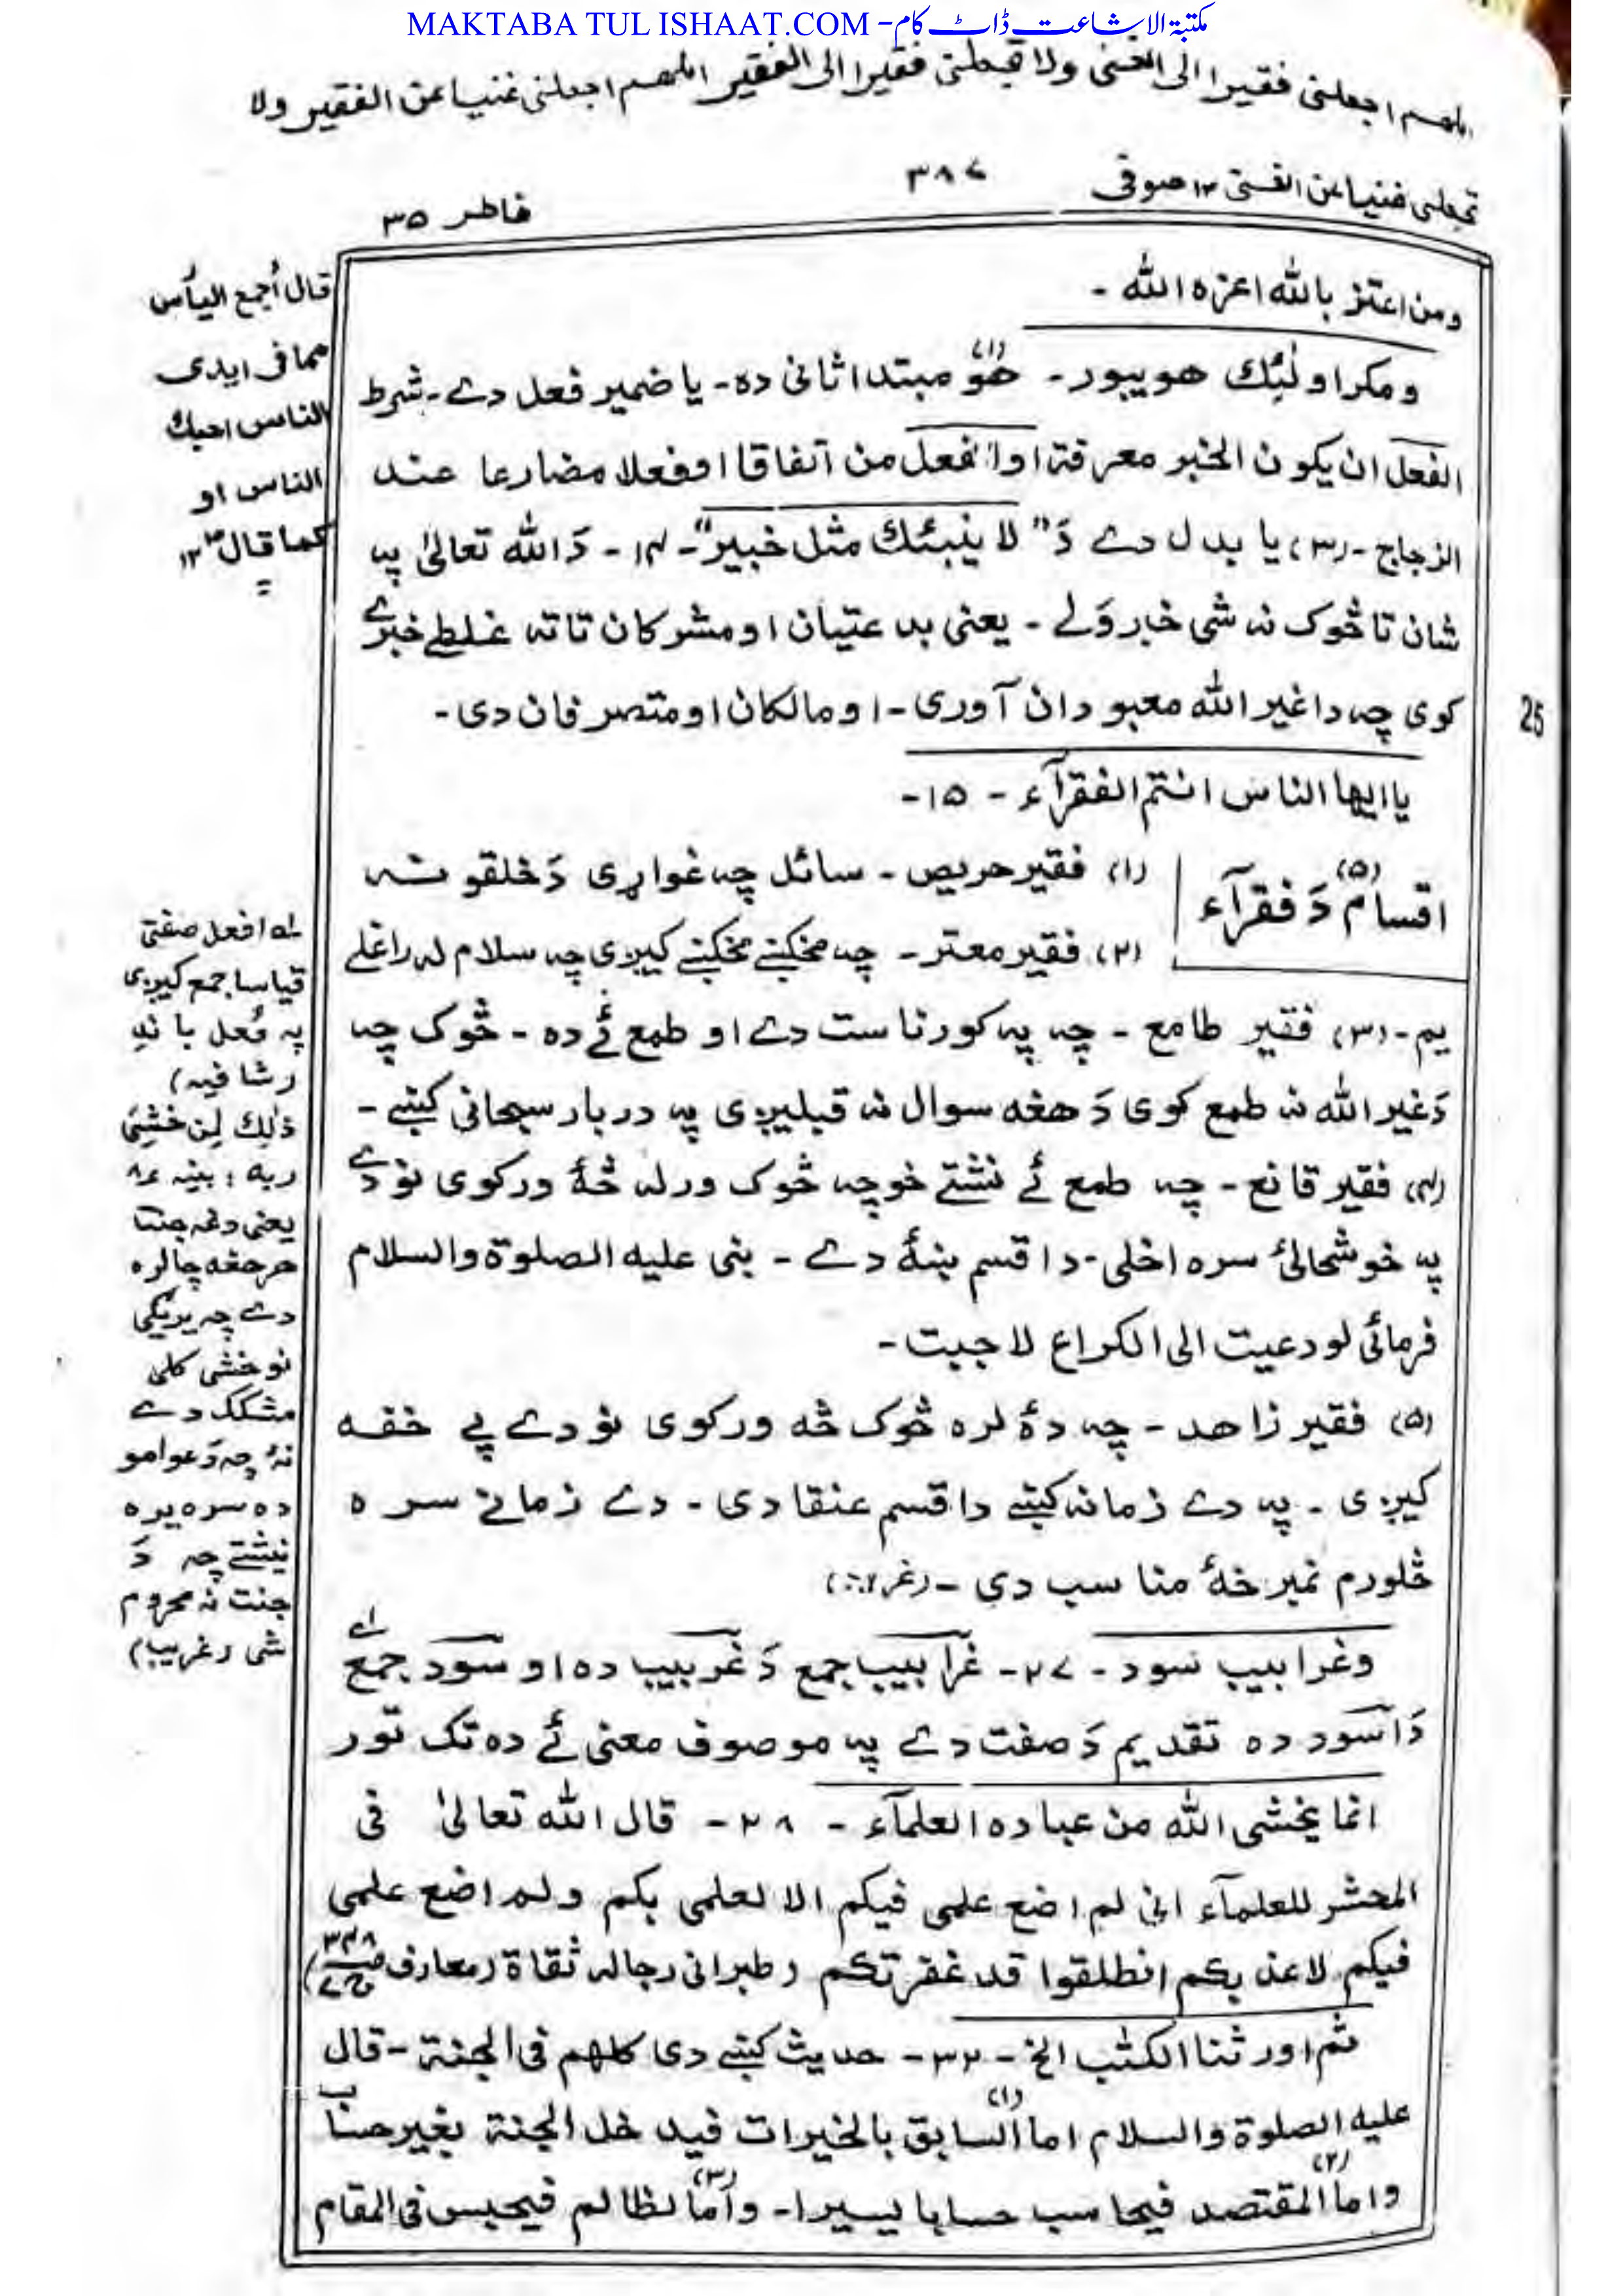 MAKTABA TUL ISHAAT.COM - مکتبۃ الاشاعت ڈاٹ کام
اللهم اجعلنی فقیرا الی الغنی ولا تجعلنی فقیرا الی الفقیر اللهم اجعلنی غنیا عن الفقیر ولا
تجعلنی غنیا عن الغنی ۱۲ صوفی
۳۸۷
فاطر ۳۵
ومن اعتز بالله اعزه الله -
ومکر اولٰئک هو یبور - هُوَ (۱) مبتدا ثانی ده - یا ضمیر فعل دے - شرط
الفعل ان یکون الخبر معرفة او افعل من اتفاقا او فعلا مضارعا عند
الزجاج - (۳) یا بدل دے دَ " لا ینبئک مثل خبیر" - ۱۴ - دَ الله تعالیٰ په
شان تا څوک نه شی خبرولے - یعنی بدعتیان او مشرکان تا ته غلطے خبرے
کوی چه دا غیر الله معبودان آوری - او مالکان او متصرفان دی -
25
یا ایها الناس انتم الفقرآء - ۱۵ -
اقسام (۵) دَ فقرآء
(۱) فقیر حریص - سائل چه غواړی دَ خلقو نه
(۲) فقیر معتر - چه مخکښے مخکښے کیږی چه سلام له راغلے
یم - (۳) فقیر طامع - چه په کور ناست دے او طمع ئے ده - څوک چه
دَ غیر الله نه طمع کوی دَ هغه سوال نه قبلیږی په دربار سبحانی کښے -
(۴) فقیر قانع - چه طمع ئے نشتے خو چه څوک ورله څهٔ ورکوی نو دے
په خوشحالئ سره اخلی - دا قسم ښهٔ دے - نبی علیه الصلوة والسلام
فرمائی لو دعیت الی الکراع لاجبت -
(۵) فقیر زاهد - چه دهٔ لره څوک څه ورکوی نو دے پے خفه
کیږی - په دے زمانه کښے دا قسم عنقا دی - دے زمانے سره
څلورم نمبر خهٔ مناسب دی -
وغرابیب سود - ۲۷ - غرابیب جمع دَ غربیب ده او سود جمع
دَ اسود ده تقدیم دَ صفت دے په موصوف معنی ئے ده تک تور
انما یخشی الله من عباده العلمآء - ۲۸ - قال الله تعالیٰ فی
المحشر للعلمآء انی لم اضع علمی فیکم الا لعلمی بکم ولم اضع علمی
فیکم لاعذبکم انطلقوا قد غفرت لکم (طبرانی رجاله ثقاة (معارف ص ۳۴۸ ج ۷)
ثم اورثنا الکتٰب الخ - ۳۲ - حدیث کښے دی کلهم فی الجنة - قال
علیه الصلوة والسلام اما السابق (۱) بالخیرات فیدخل الجنة بغیر حساب
واما المقتصد (۲) فیحاسب حسابا یسیرا - واما (۳) لظالم فیحبس فی المقام
قال أجمع الیأس
مما فی ایدی
الناس احبک
الناس او
کما قال ۱۲
لـه افعل صفتی
قیاسا جمع کیږی
په فُعل باندِ
(شافیه)
ذٰلک لِمن خَشِیَ
ربه : بینه ۸
یعنی دغه جنت
هر هغه چا لره
دے چه یریږی
نو خشی کلی
مشکک دے
نهٔ چه دَ عوامو
ده سره یره
نیشتے چه دَ
جنت نه محروم
شی (غریب)